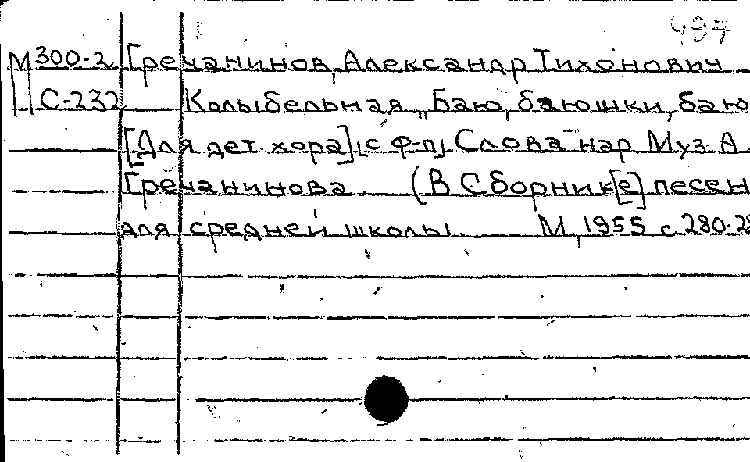 497
М 300-2 Гречанинов, Александр Тихонович
С-232 Колыбельная „Баю, баюшки, баю
[Для дет. хора] с ф-п. Слова нар Муз А
Гречанинова (В Сборник[е] песен
для средней школы М, 1955 с 280-28